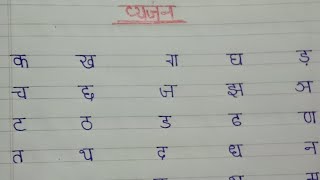 व्यजंन
क ख ग घ ड़
च छ ज झ ञ
ट ठ ड ढ ण
त थ द ध न